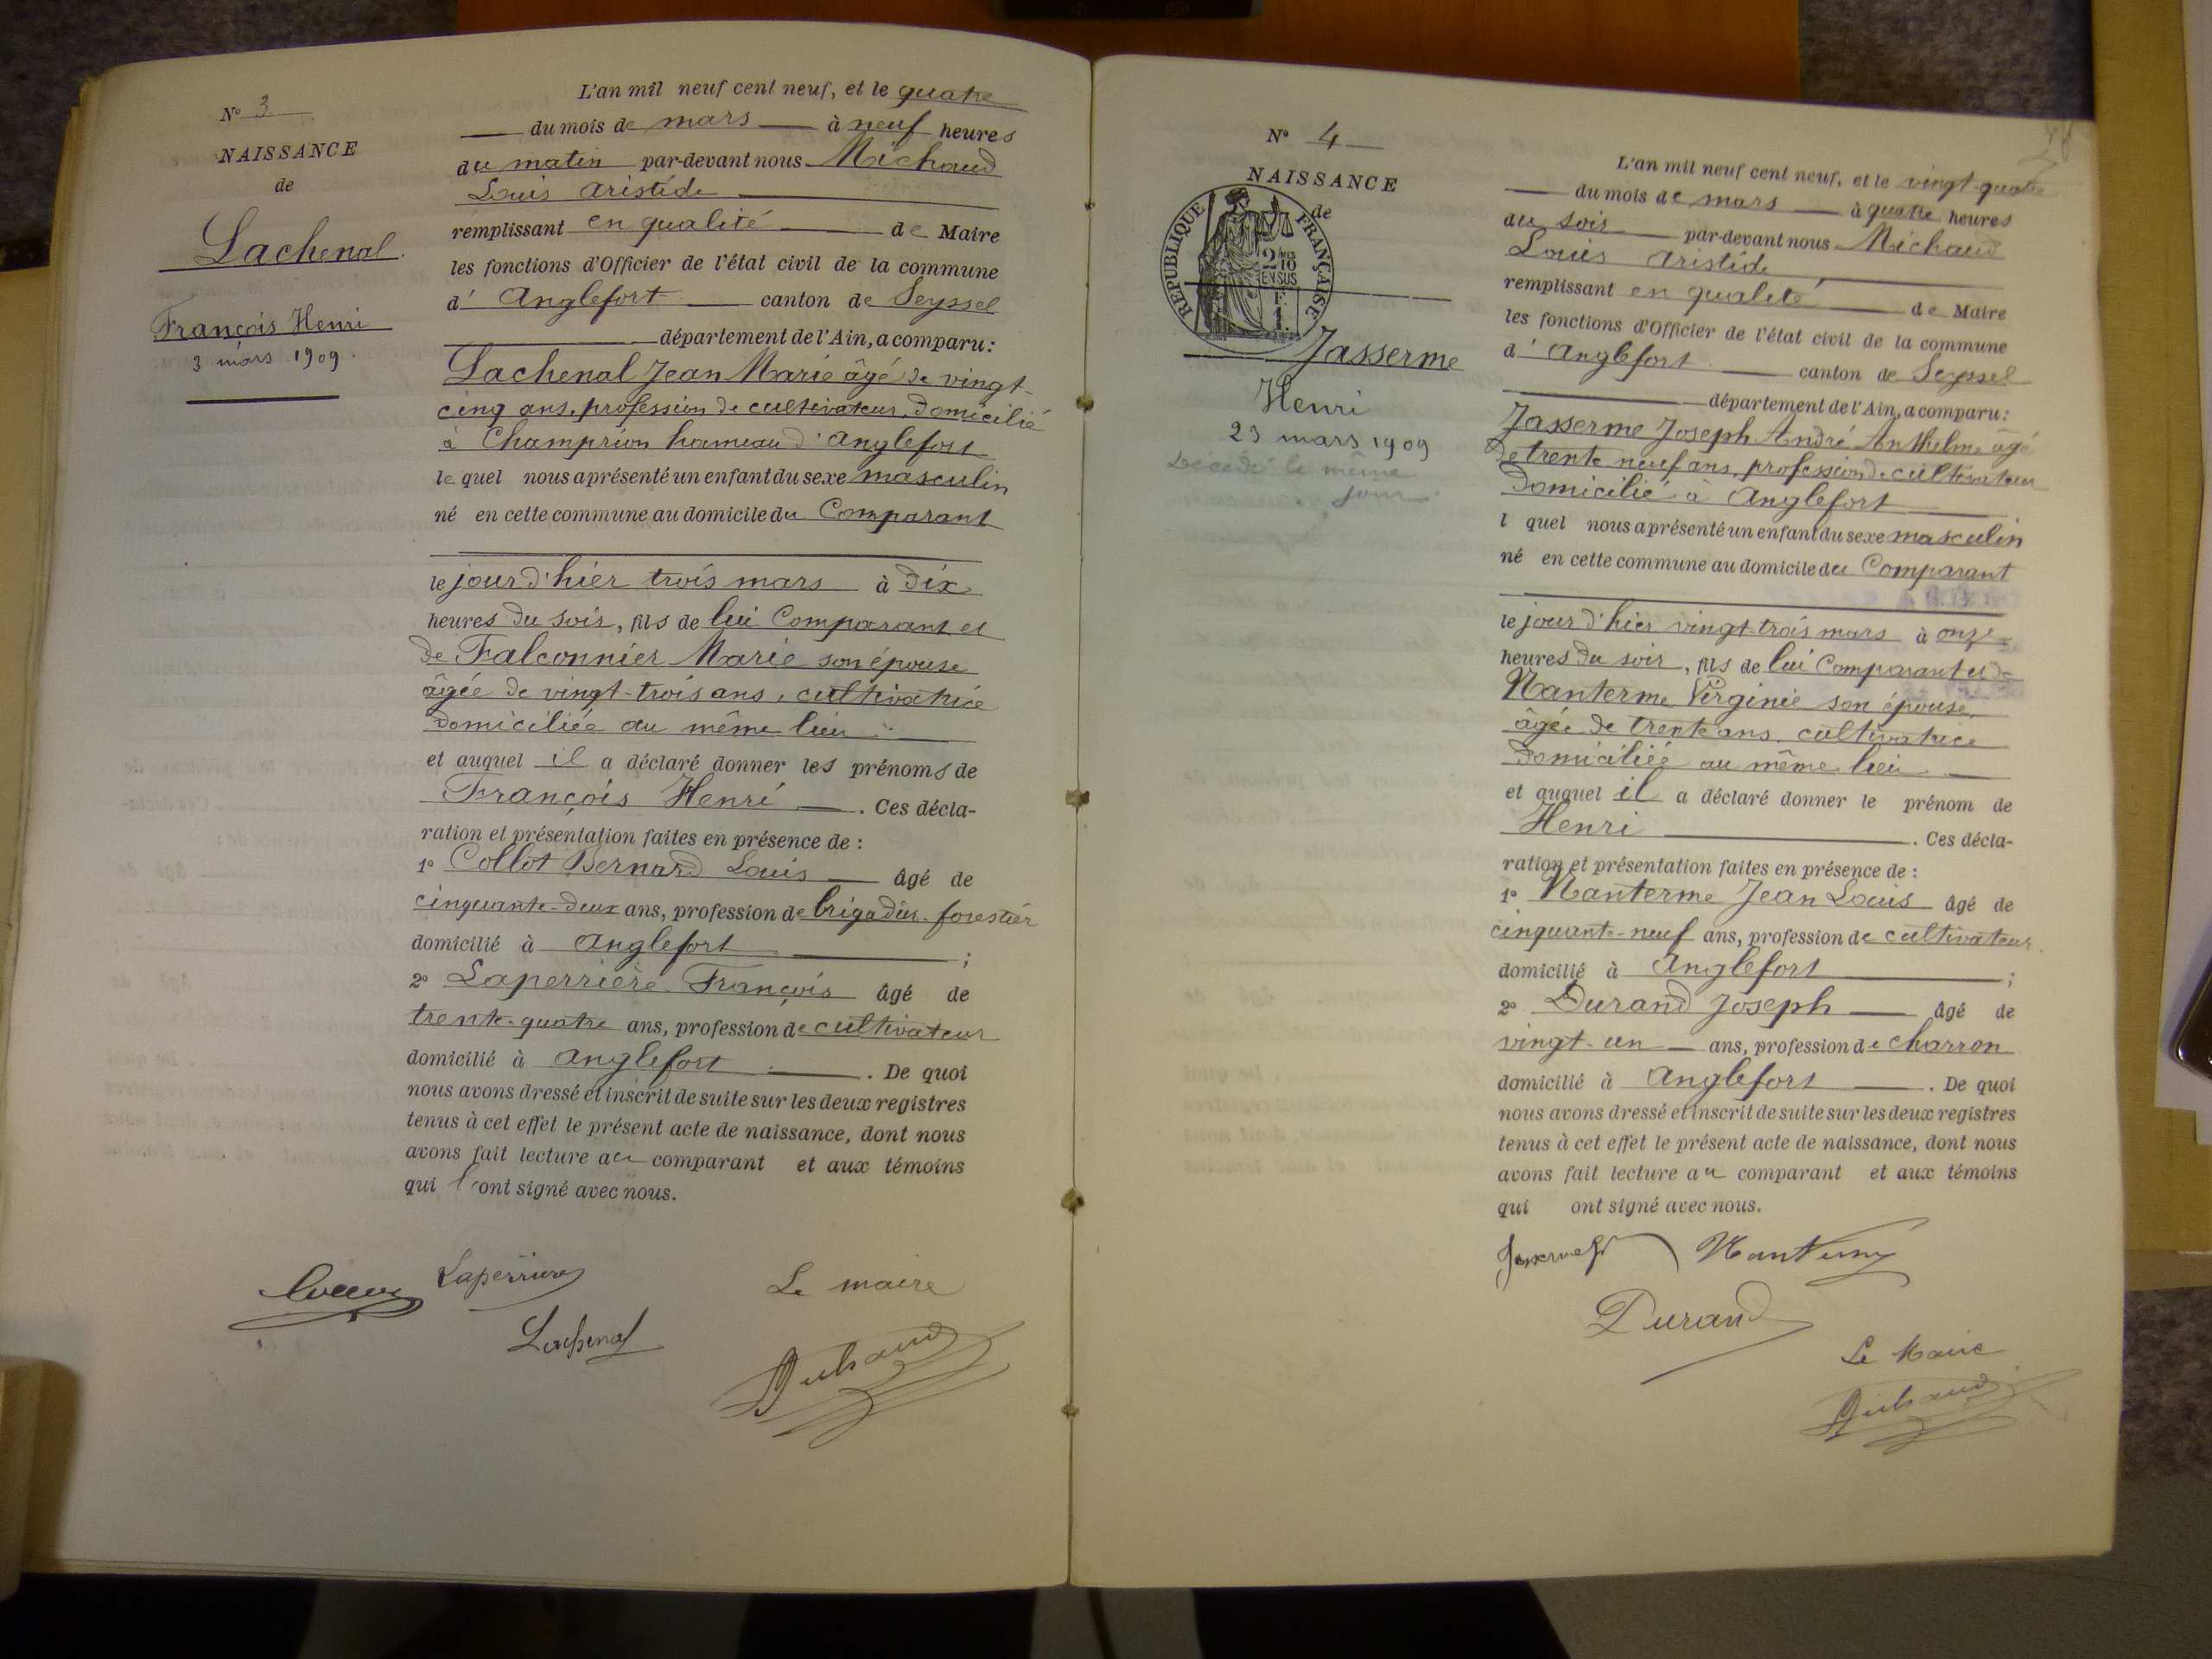 N° 3
NAISSANCE
de
Lachenal
François Henri
3 mars 1909.
L'an mil neuf cent neuf, et le quatre
du mois de mars à neuf heures
du matin par-devant nous Michaud
Louis Aristide
remplissant en qualité de Maire
les fonctions d'Officier de l'état civil de la commune
d' Anglefort canton de Seyssel
département de l'Ain, a comparu :
Lachenal Jean Marie âgé de vingt-
cinq ans, profession de cultivateur, domicilié
à Champrion hameau d'Anglefort
le quel nous a présenté un enfant du sexe masculin
né en cette commune au domicile du Comparant
le jour d'hier trois mars à dix
heures du soir, fils de lui Comparant et
de Falconnier Marie son épouse
âgée de vingt-trois ans, cultivatrice
domiciliée au même lieu
et auquel il a déclaré donner les prénoms de
François Henri. Ces décla-
ration et présentation faites en présence de :
1° Collot Bernard Louis âgé de
cinquante-deux ans, profession de brigadier-forestier
domicilié à Anglefort ;
2° Laperrière François âgé de
trente-quatre ans, profession de cultivateur
domicilié à Anglefort. De quoi
nous avons dressé et inscrit de suite sur les deux registres
tenus à cet effet le présent acte de naissance, dont nous
avons fait lecture au comparant et aux témoins
qui l'ont signé avec nous.
Laperrière
Lachenal
Le maire
N° 4
NAISSANCE
de
RÉPUBLIQUE FRANÇAISE
2/10
EN SUS
F.
1.
Jasserme
Henri
23 mars 1909
Décédé le même
jour.
L'an mil neuf cent neuf, et le vingt-quatre
du mois de mars à quatre heures
du soir par-devant nous Michaud
Louis Aristide
remplissant en qualité de Maire
les fonctions d'Officier de l'état civil de la commune
d' Anglefort canton de Seyssel
département de l'Ain, a comparu :
Jasserme Joseph André Anthelme âgé
de trente-neuf ans, profession de cultivateur
domicilié à Anglefort
l quel nous a présenté un enfant du sexe masculin
né en cette commune au domicile du Comparant
le jour d'hier vingt-trois mars à onze
heures du soir, fils de lui Comparant et de
Nanterme Virginie son épouse,
âgée de trente ans, cultivatrice
domiciliée au même lieu
et auquel il a déclaré donner le prénom de
Henri. Ces décla-
ration et présentation faites en présence de :
1° Nanterme Jean Louis âgé de
cinquante-neuf ans, profession de cultivateur
domicilié à Anglefort ;
2° Durand Joseph âgé de
vingt-un ans, profession de charron
domicilié à Anglefort. De quoi
nous avons dressé et inscrit de suite sur les deux registres
tenus à cet effet le présent acte de naissance, dont nous
avons fait lecture au comparant et aux témoins
qui ont signé avec nous.
Durand
Le Maire